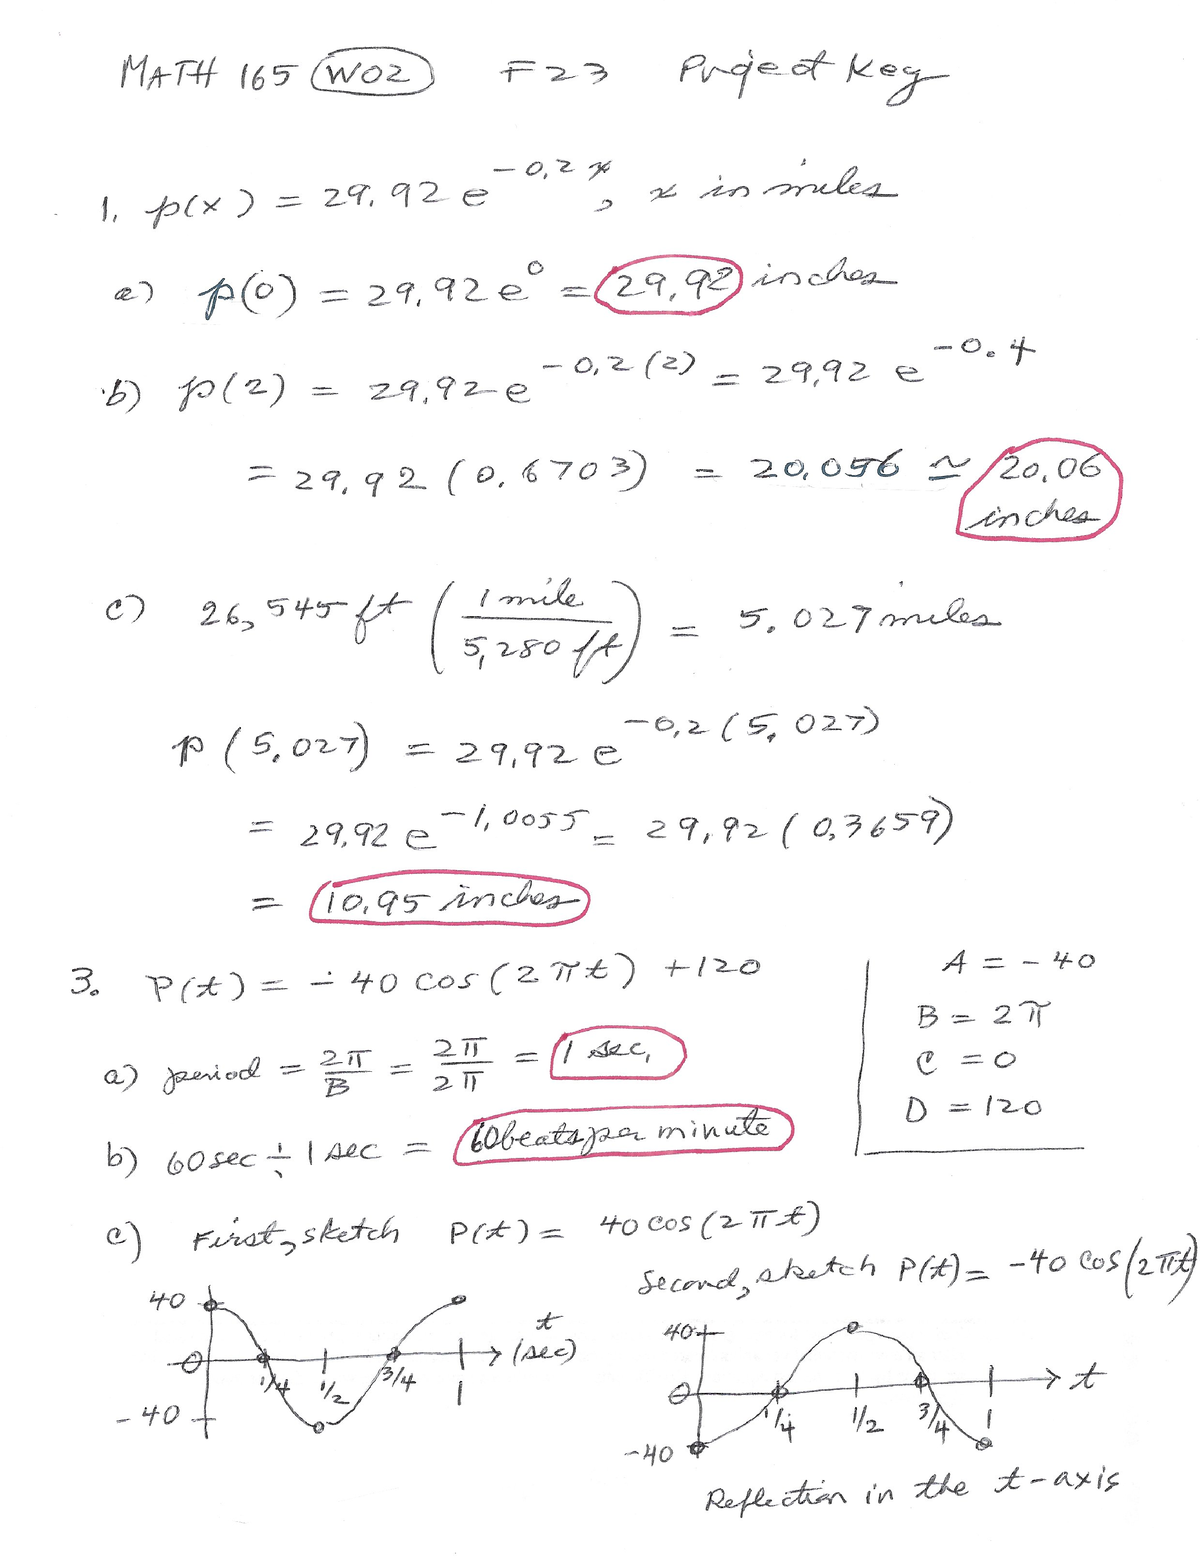 MATH 165 W02 F23 Project Key
1. p(x) = 29.92 e^-0.2x, x in miles
a) p(0) = 29.92 e^0 = 29.92 inches
b) p(2) = 29.92 e^-0.2(2) = 29.92 e^-0.4
= 29.92 (0.6703) = 20.056 ≃ 20.06 inches
c) 26,545 ft (1 mile / 5,280 ft) = 5.027 miles
p(5.027) = 29.92 e^-0.2(5.027)
= 29.92 e^-1.0055 = 29.92 (0.3659)
= 10.95 inches
3. P(t) = -40 cos(2πt) + 120
A = -40
B = 2π
C = 0
D = 120
a) period = 2π/B = 2π/2π = 1 sec.
b) 60 sec ÷ 1 sec = 60 beats per minute
c) First, sketch P(t) = 40 cos(2πt)
Second, sketch P(t) = -40 cos(2πt)
40
0
-40
1/4 1/2 3/4 1
t (sec)
40
0
-40
1/4 1/2 3/4 1
t
Reflection in the t-axis